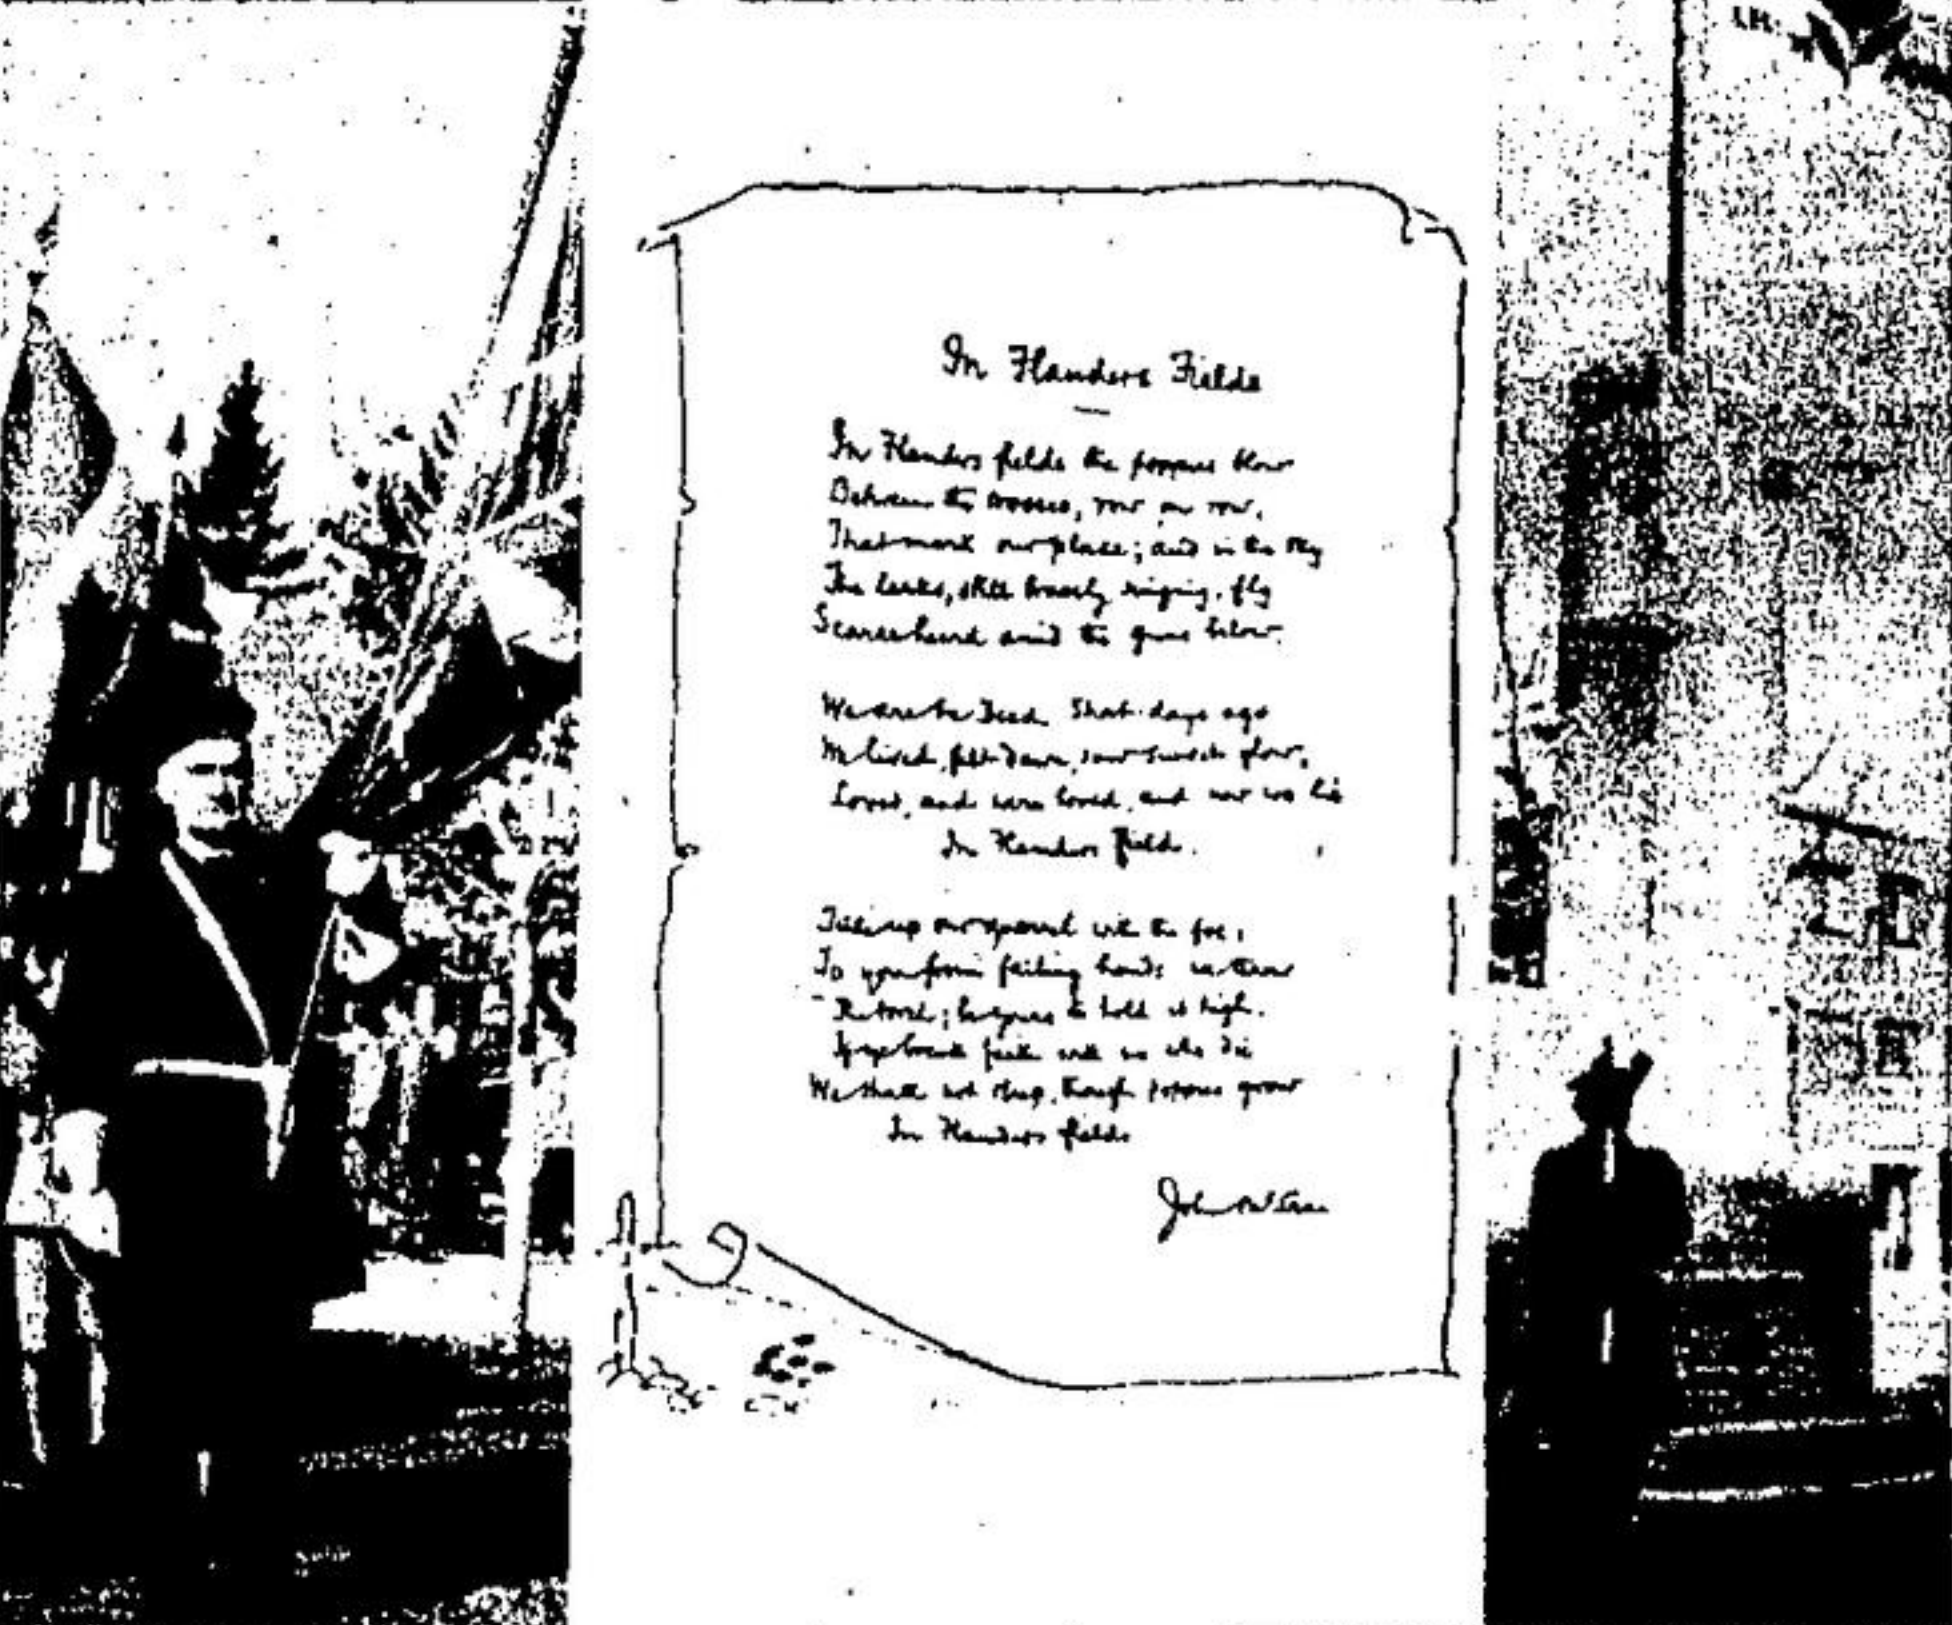 In Flanders Fields
In Flanders fields the poppies blow
Between the crosses, row on row,
That mark our place; and in the sky
The larks, still bravely singing, fly
Scarce heard amid the guns below.
We are the Dead. Short days ago
We lived, felt dawn, saw sunset glow,
Loved, and were loved, and now we lie
In Flanders fields.
Take up our quarrel with the foe;
To you from failing hands we throw
The torch; be yours to hold it high.
If ye break faith with us who die
We shall not sleep, though poppies grow
In Flanders fields
John McCrae